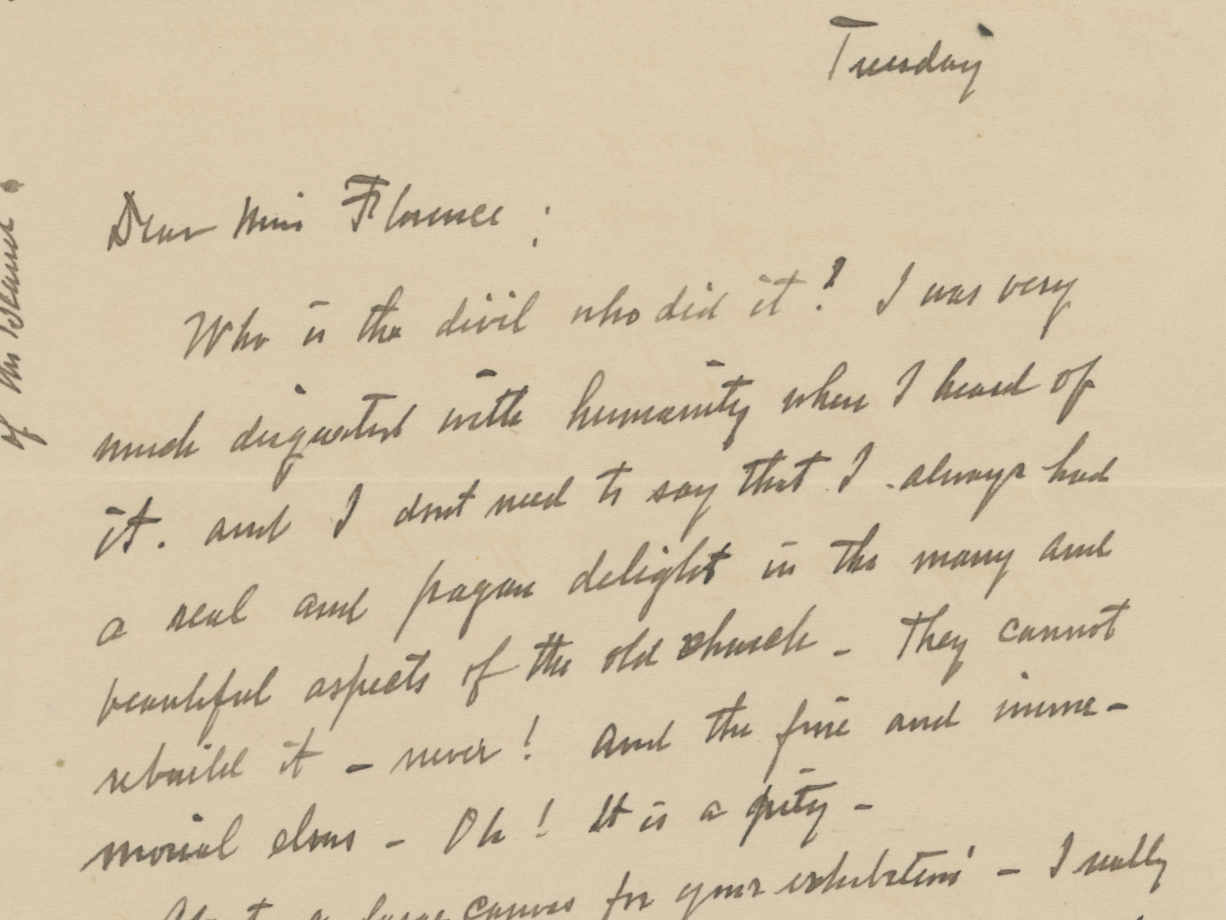 Tuesday
Dear Miss Florence :
Who is the divil who did it? I was very
much disgusted with humanity when I heard of
it. and I dont need to say that I always had
a real and pagan delight in the many and
beautiful aspects of the old church - They cannot
rebuild it - never! And the fine and imme-
morial elms - Oh! It is a pity -
a large canvas for your exhibition - I really
of this